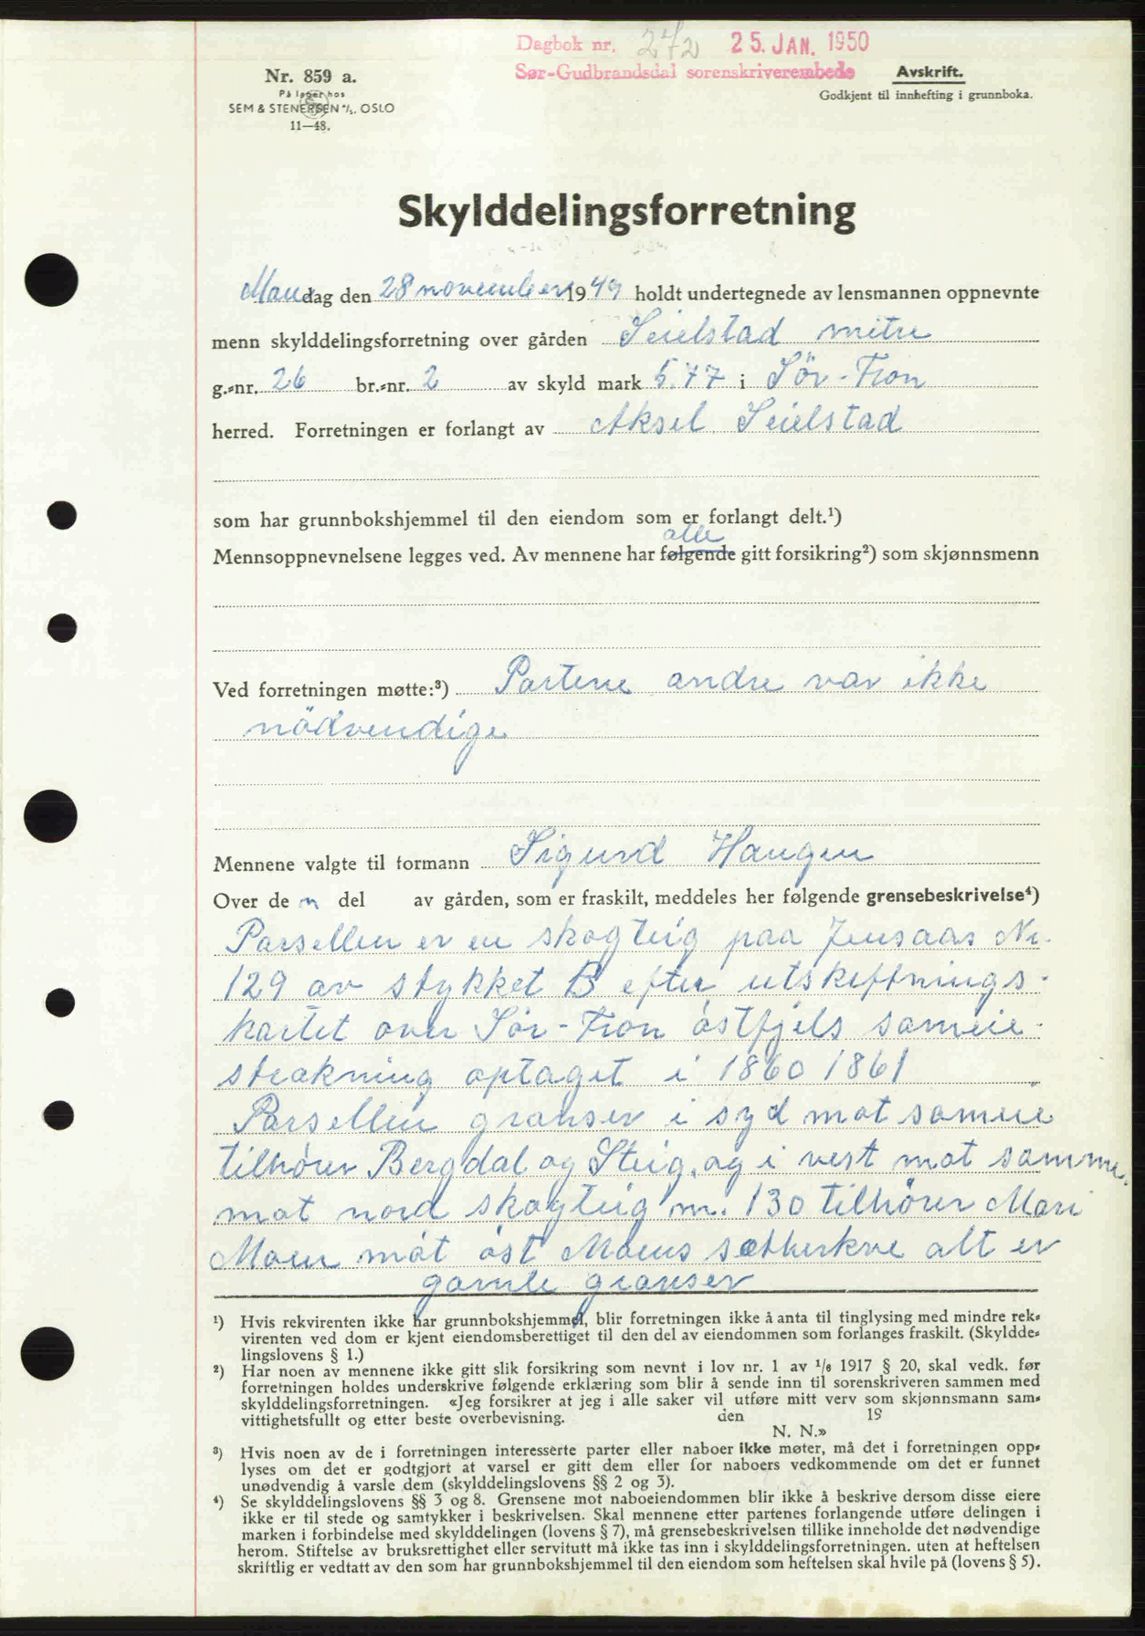 Dagbok nr. 272 25. JAN. 1950
Sør-Gudbrandsdal sorenskriverembede
Avskrift.
Godkjent til innhefting i grunnboka.
Nr. 859 a.
På lager hos
SEM & STENERSEN A/S. OSLO
11—48.
Skylddelingsforretning
Mandag den 28 november 1949 holdt undertegnede av lensmannen oppnevnte
menn skylddelingsforretning over gården Seielstad nitre
g.-nr. 26 br.-nr. 2 av skyld mark 5.77 i Sör-Fron
herred. Forretningen er forlangt av Aksel Seielstad
som har grunnbokshjemmel til den eiendom som er forlangt delt.¹)
alle
Mennsoppnevnelsene legges ved. Av mennene har følgende gitt forsikring²) som skjønnsmenn
Ved forretningen møtte:³) Partene andre var ikke
nödvendige
Mennene valgte til formann Sigurd Haugen
Over de n del av gården, som er fraskilt, meddeles her følgende grensebeskrivelse⁴)
Parsellen er en skogteig paa Jensaas Nr.
129 av stykket B efter utskiftnings-
kartet over Sör-Fron östfjels sameie-
strækning optaget i 1860 1861
Parsellen grænser i syd mot sameie
tilhörer Bergdal og Steig, og i vest mot samme,
mot nord skogteig nr. 130 tilhörer Mari
Moen mot öst Moens sætherkve alt er
gamle grænser
¹) Hvis rekvirenten ikke har grunnbokshjemmel, blir forretningen ikke å anta til tinglysing med mindre rek-
virenten ved dom er kjent eiendomsberettiget til den del av eiendommen som forlanges fraskilt. (Skyldde-
lingslovens § 1.)
²) Har noen av mennene ikke gitt slik forsikring som nevnt i lov nr. 1 av 1/6 1917 § 20, skal vedk. før
forretningen holdes underskrive følgende erklæring som blir å sende inn til sorenskriveren sammen med
skylddelingsforretningen. «Jeg forsikrer at jeg i alle saker vil utføre mitt verv som skjønnsmann sam-
vittighetsfullt og etter beste overbevisning. den 19
N. N.»
³) Hvis noen av de i forretningen interesserte parter eller naboer ikke møter, må det i forretningen opp-
lyses om det er godtgjort at varsel er gitt dem eller for naboers vedkommende om det er funnet
unødvendig å varsle dem (skylddelingslovens §§ 2 og 3).
⁴) Se skylddelingslovens §§ 3 og 8. Grensene mot naboeiendommen blir ikke å beskrive dersom disse eiere
ikke er til stede og samtykker i beskrivelsen. Skal mennene etter partenes forlangende utføre delingen i
marken i forbindelse med skylddelingen (lovens § 7), må grensebeskrivelsen tillike inneholde det nødvendige
herom. Stiftelse av bruksrettighet eller servitutt må ikke tas inn i skylddelingsforretningen. uten at heftelsen
skriftlig er vedtatt av den som har grunnbokshjemmel til den eiendom som heftelsen skal hvile på (lovens § 5).